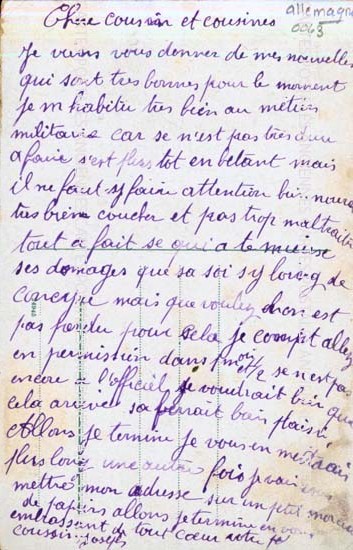 allemagne
0063
Chere cousin et cousines
Je viens vous donner de mes nouvelles
qui sont tres bonnes pour le moment
je m habitu tres bien au métier
militaire car se n'est pas tres dure
a faire s'est plus tot en betant mais
il ne faut sy faire attention bien nourri
tres bien coucher et pas trop maltraité
tout a fait se qui a te
ses domages que sa soi sy loing de
mais que voulez on est
pas pour cela je compt allez
en permission dans se n'est pas
encore l'officiel je voudrait bien que
cela arrive sa ferrait bien plaisir
Allons je termine je vous en
plus long une autre fois je vais
mettre mon adresse sur un petit morceau
de papiers allons je termine en vous
embrassant de tout cœur votre
cousin Joseph